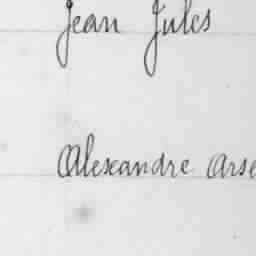 Jean Jules
Alexandre Arse